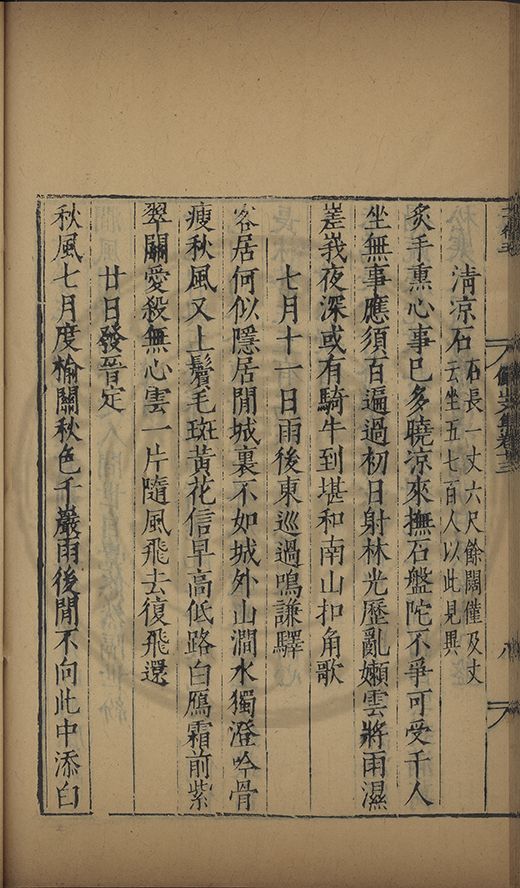 山文集卷十三
八
清凉石石長一丈六尺餘闊僅及丈
云坐五七百人以此見異
炙手熏心事已多曉凉來撫石盤陀不爭可受千人
坐無事應須百遍過初日射林光歷亂嬾雲將雨濕
嵳峩夜深或有騎牛到堪和南山扣角歌
七月十一日雨後東巡過鳴謙驛
客居何似隱居閒城裏不如城外山澗水獨澄吟骨
瘦秋風又上鬢毛斑黃花信早高低路白鴈霜前紫
翠關愛殺無心雲一片隨風飛去復飛還
廿日發晉定
秋風七月度榆關秋色千巖雨後閒不向此中添白